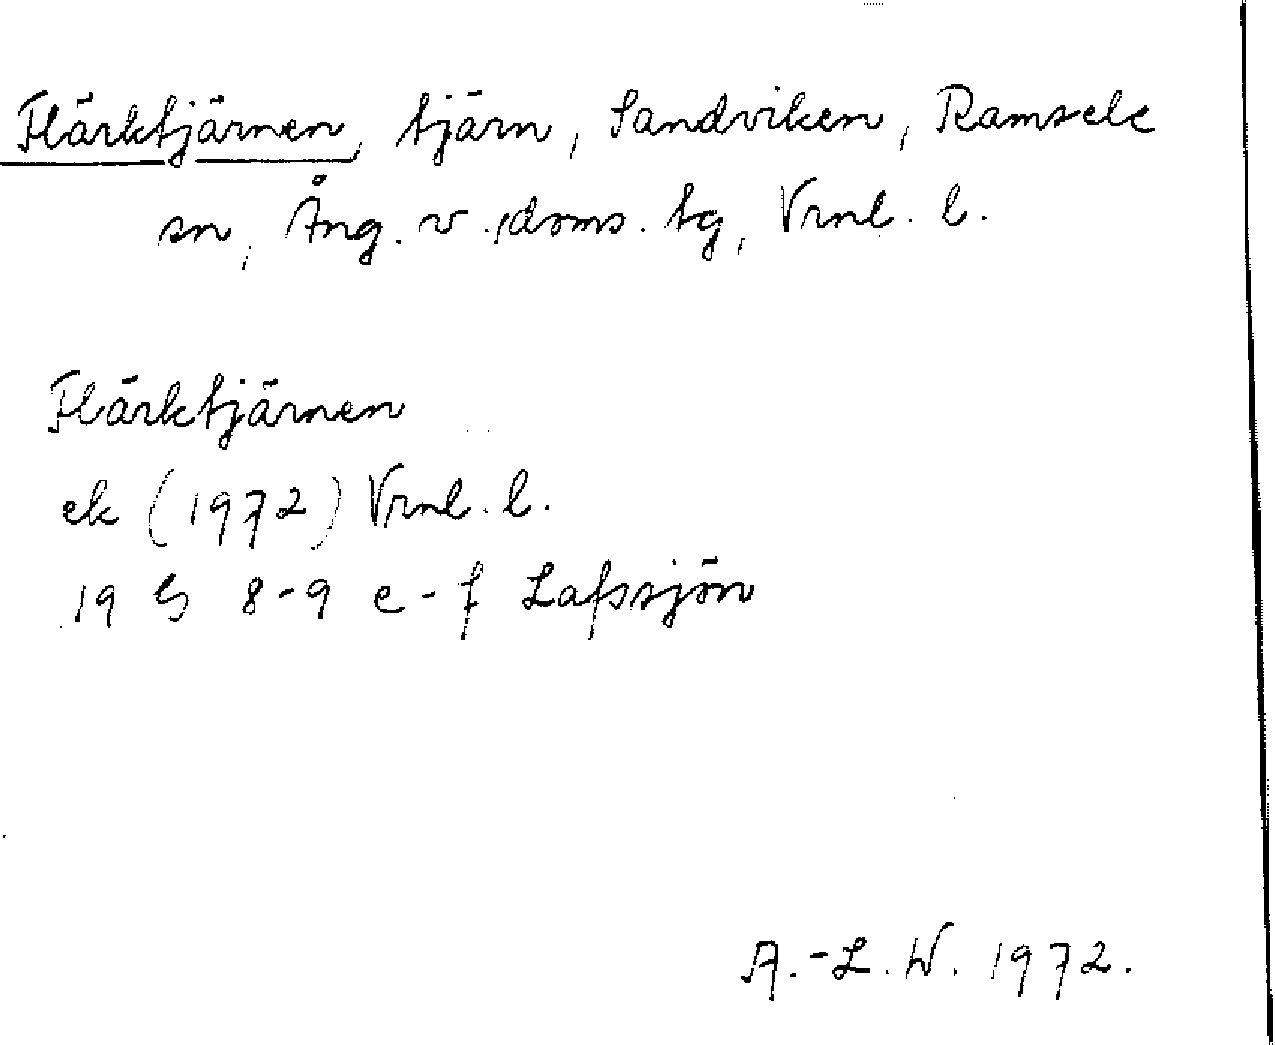 Flärktjärnen, tjärn, Sandviken, Ramsele
sn, Ång. v. doms. tg, Vrnl. l.
Flärktjärnen
ek (1972) Vrnl. l.
19 G 8-9 e-f Lafssjön
A.-L. W. 1972.